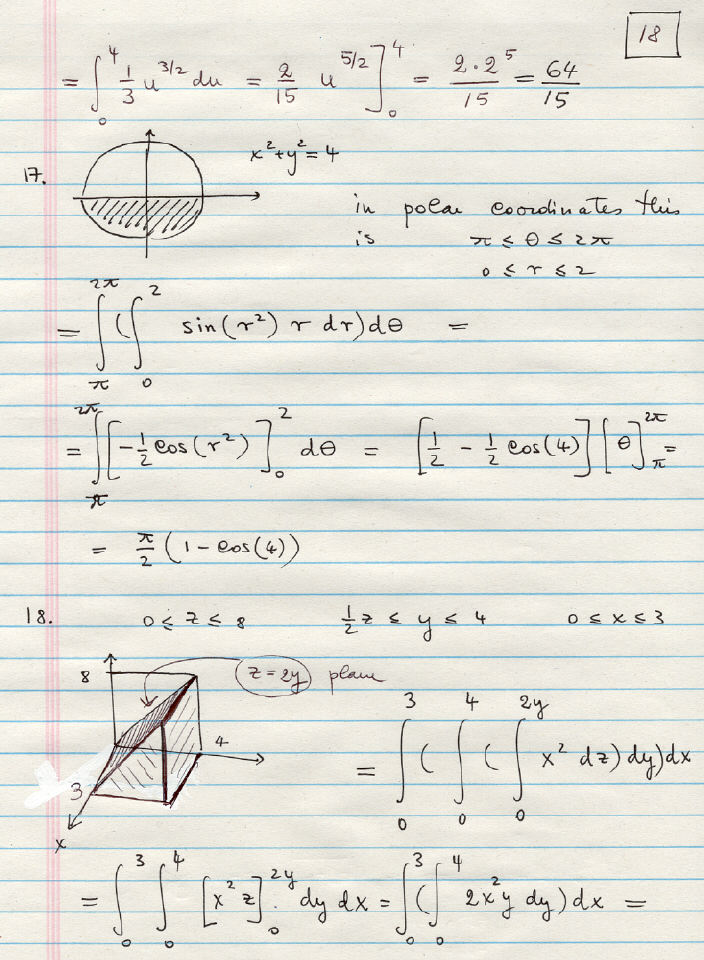 18
= ∫₀⁴ 1/3 u^{3/2} du = 2/15 u^{5/2} ]₀⁴ = 2·2⁵/15 = 64/15
17. x²+y²=4
in polar coordinates this
is π ≤ θ ≤ 2π
0 ≤ r ≤ 2
= ∫_π^{2π} (∫₀² sin(r²) r dr) dθ =
= ∫_π^{2π} [-1/2 cos(r²)]₀² dθ = [1/2 - 1/2 cos(4)] [θ]_π^{2π} =
= π/2 (1 - cos(4))
18. 0 ≤ z ≤ 8 1/2 z ≤ y ≤ 4 0 ≤ x ≤ 3
8 z = 2y plane
4
3
x
= ∫₀³ ( ∫₀⁴ ( ∫₀^{2y} x² dz) dy) dx
= ∫₀³ ∫₀⁴ [x² z]₀^{2y} dy dx = ∫₀³ (∫₀⁴ 2x²y dy) dx =